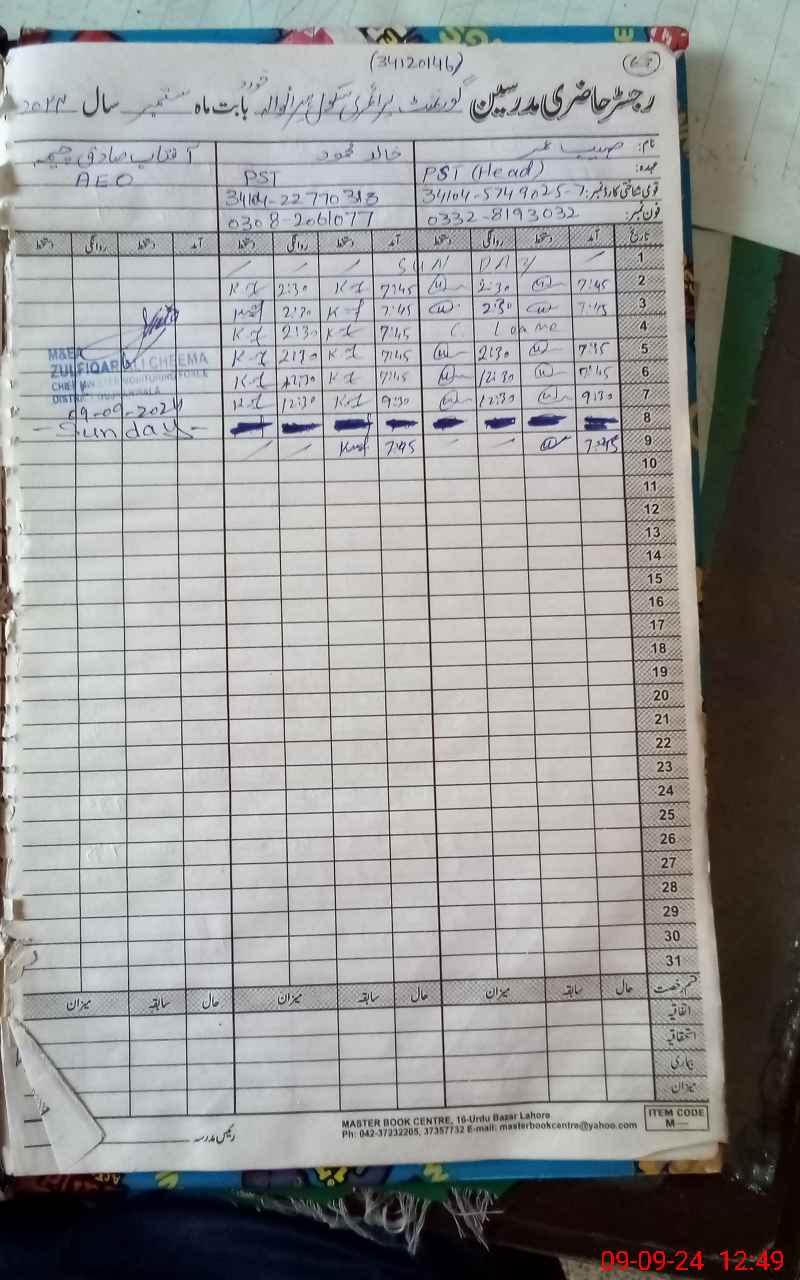 (34120146)
رجسٹر حاضری مدرسین گورنمنٹ پرائمری سکول بابت ماہ ستمبر سال ۲۰۲۴
نام: صہیب عمر خالد محمود آفتاب صادق چیمہ
عہدہ: PST (Head) PST AEO
قومی شناختی کارڈ نمبر: 34104-5749025-7 34104-2277031-3
فون نمبر: 0332-8193032 0308-2061077
تاریخ آمد دستخط روانگی دستخط آمد دستخط روانگی دستخط آمد دستخط روانگی دستخط
1 SUN DAY
2 7:45 2:30 7:45 2:30
3 7:45 2:30 7:45 2:30
4 C. Leave 7:45 2:30
5 7:45 2:30 7:45 2:30
6 7:45 12:30 7:45 12:30
7 9:30 12:30 9:30 12:30
8 -Sunday-
9 7:45 7:45
M&EA
ZULFIQAR ALI CHEEMA
CHIEF MINISTER MONITORING FORCE
DISTRICT GUJRANWALA
09-09-2024
10
11
12
13
14
15
16
17
18
19
20
21
22
23
24
25
26
27
28
29
30
31
قسم رخصت حال سابقہ میزان حال سابقہ میزان حال سابقہ میزان
اتفاقیہ
استحقاقیہ
بیماری
میزان
رئیس مدرسہ
MASTER BOOK CENTRE, 16-Urdu Bazar Lahore
Ph: 042-37232205, 37357732 E-mail: masterbookcentre@yahoo.com
ITEM CODE
M—
09-09-24 12:49